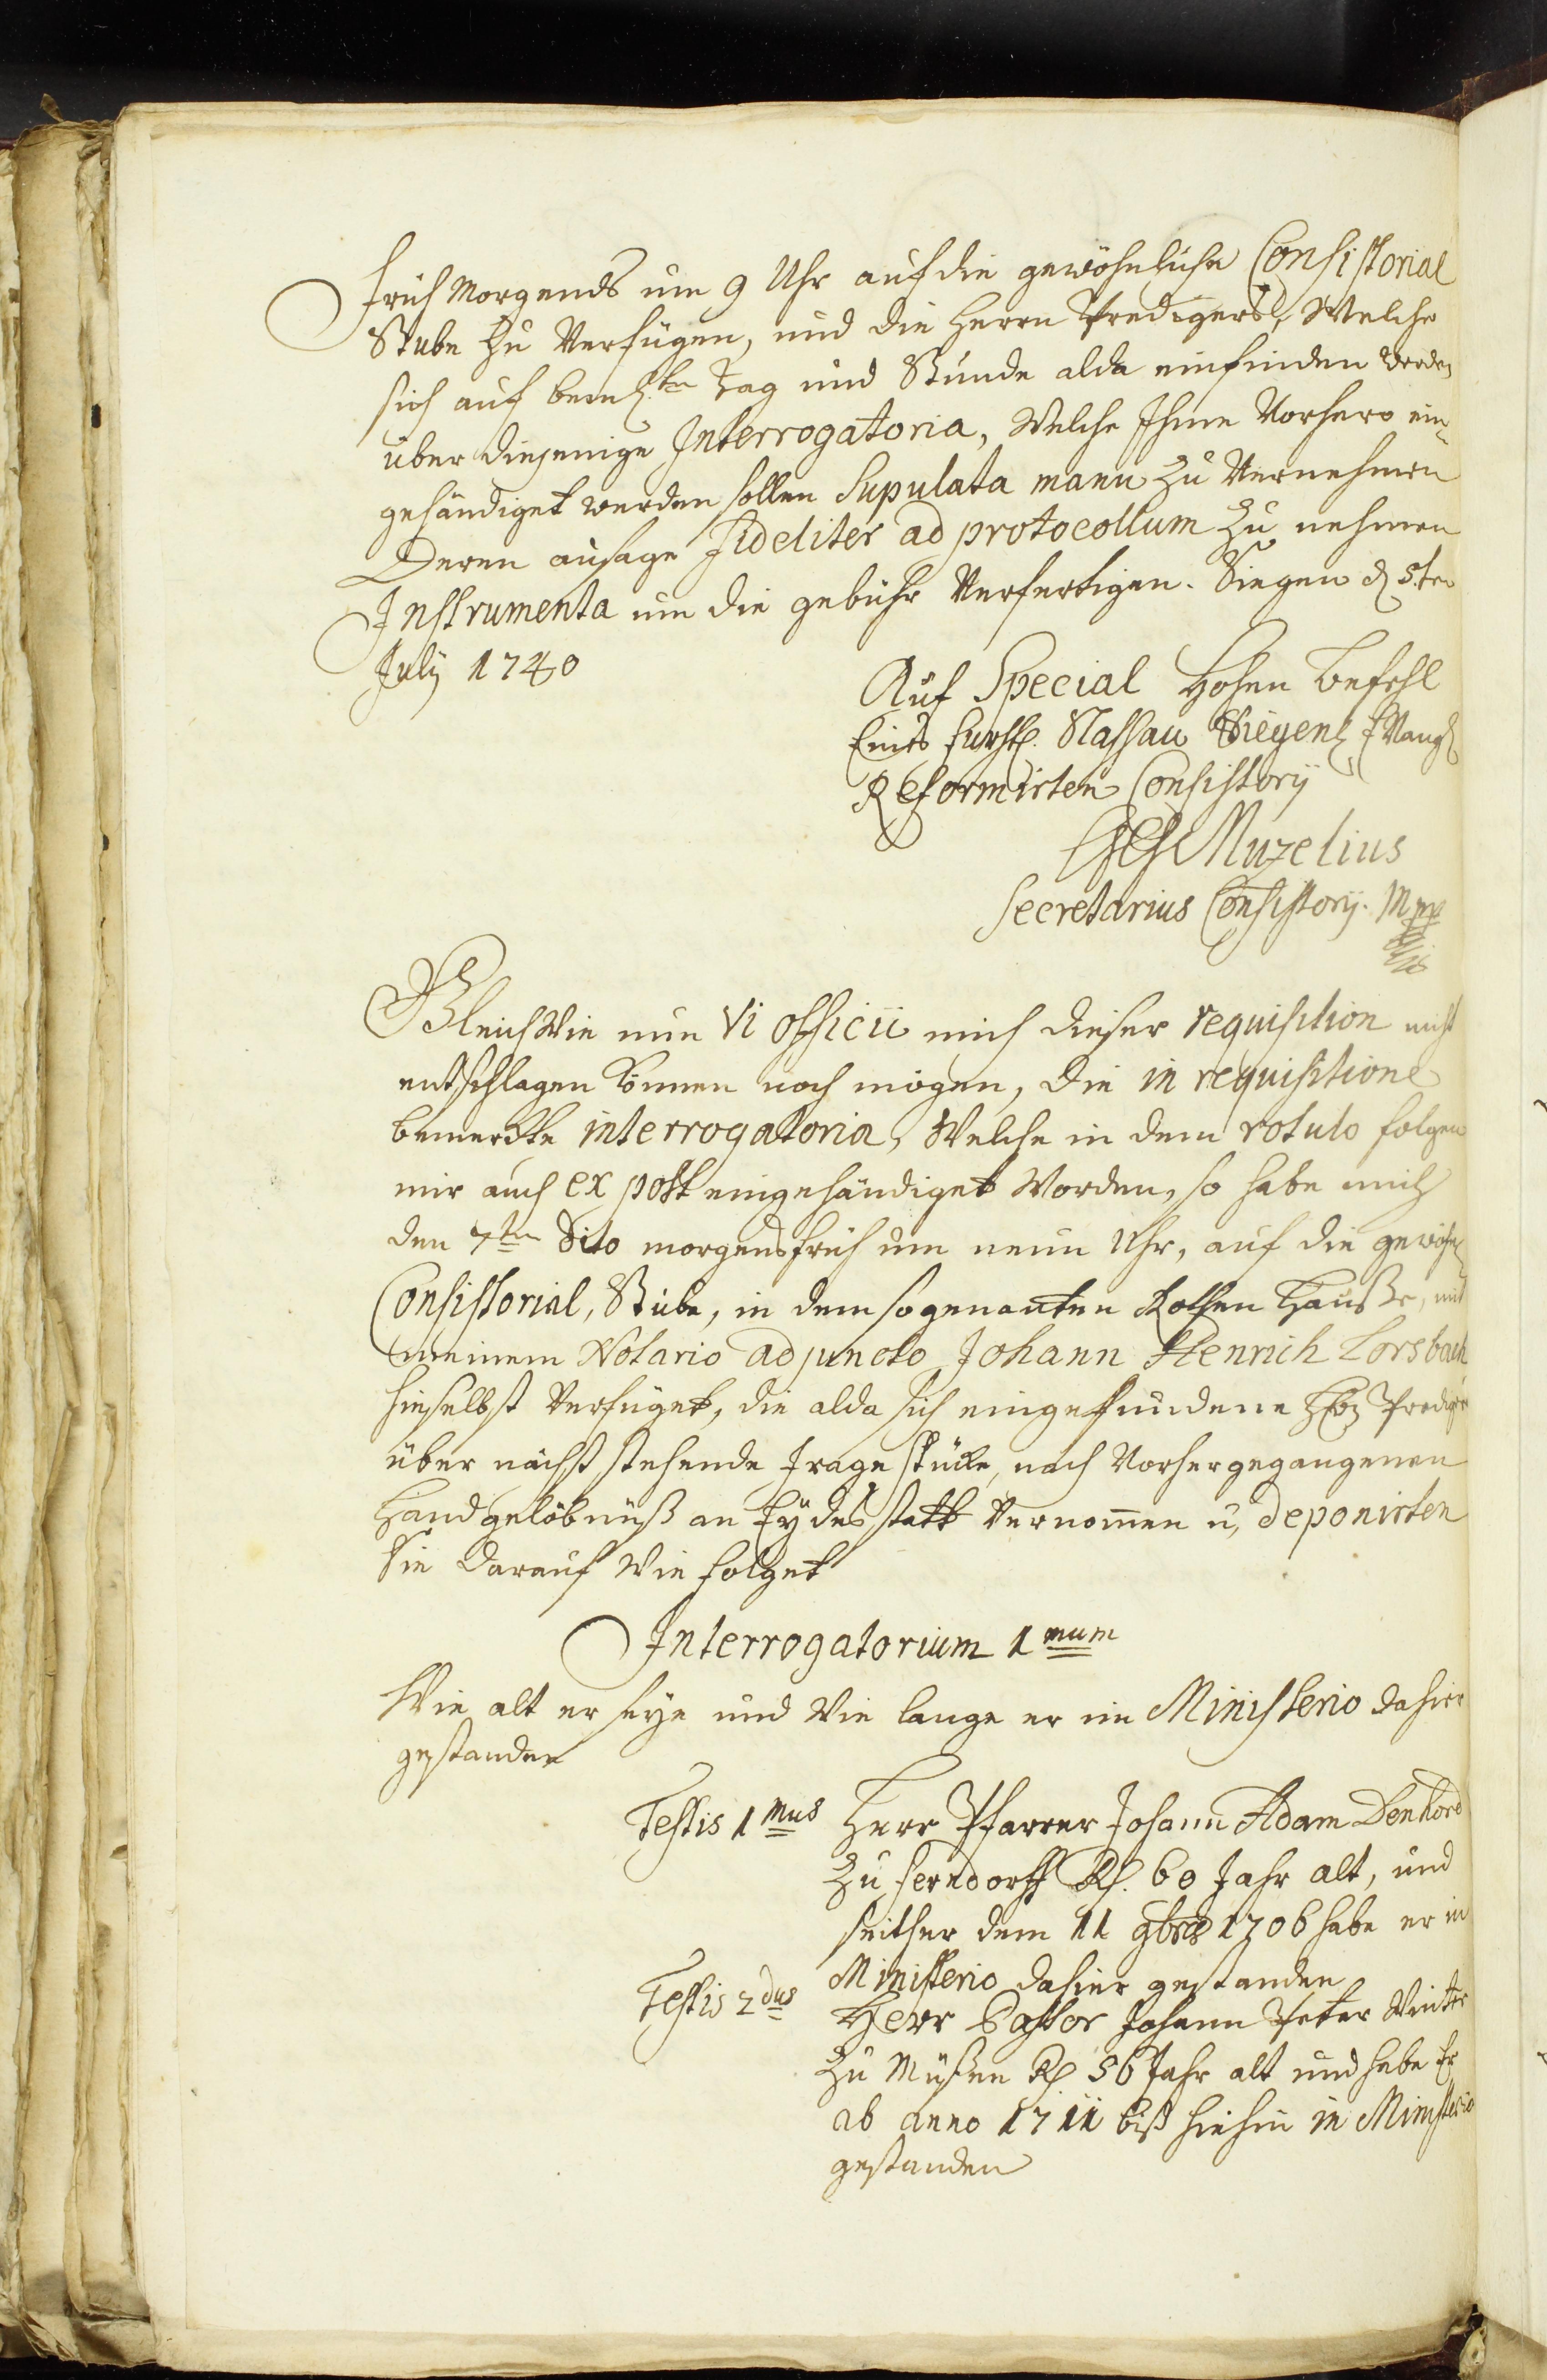 früh Morgends um 9 Uhr auf die gewöhnliche Consistorial
Stube zu Verfügen, und die Herrn Predigers, Welche
sich auf bemelten Tag und Stunde alda einfinden werden
über diejenige Interrogatoria, Welche Ihme Vorhero ein-
gehändiget werden sollen stipulata manu zu Vernehmen
Deren aussage fideliter ad protocollum zu nehmen
Instrumenta um die gebühr Verfertigen. Siegen d 5ten
July 1740
Auf Special Hohen Befehl
Eines fürstl. Nassau Siegenl Evangl
Reformirten Consistorij
Muzelius
Secretarius Consistorij. Mpp
GleichWie nun Vi officii mich dieser requisition nicht
entschlagen können noch mögen, die in requisitione
bemerckte interrogatoria, Welche in dem rotulo folgen
mir auch ex post eingehändiget Worden, so habe mich
den 7ten Dito morgends früh um neun Uhr, auf die gewöhnl
Consistorial, Stube, in dem sogenanten Rothen Hauße, mit
meinem Notario adjuncto Johann Henrich Lorsbach
hieselbst Verfüget, die alda sich eingefundene HEn Prediger
über nächst stehende Frage stücke, nach Vorhergegangenen
Handgelöbnüß an Eydes statt Vernom̄en u, deponirten
Sie darauf Wie folget
Interrogatorium 1mum
Wie alt er seye und Wie lange er im Ministerio dahier
gestanden
Testis 1mus Herr Pfarrer Johann Adam Denhard
zu ferndorff Rs. 60 Jahr alt, und
seither dem 11 9bris 1706 habe er in
Ministerio dahier gestanden
Testis 2dus Herr Pastor Johann Peter Winter
zu Müßen Rs 56 Jahr alt und habe Er
ab anno 1711 biß hiehin in Ministerio
gestanden